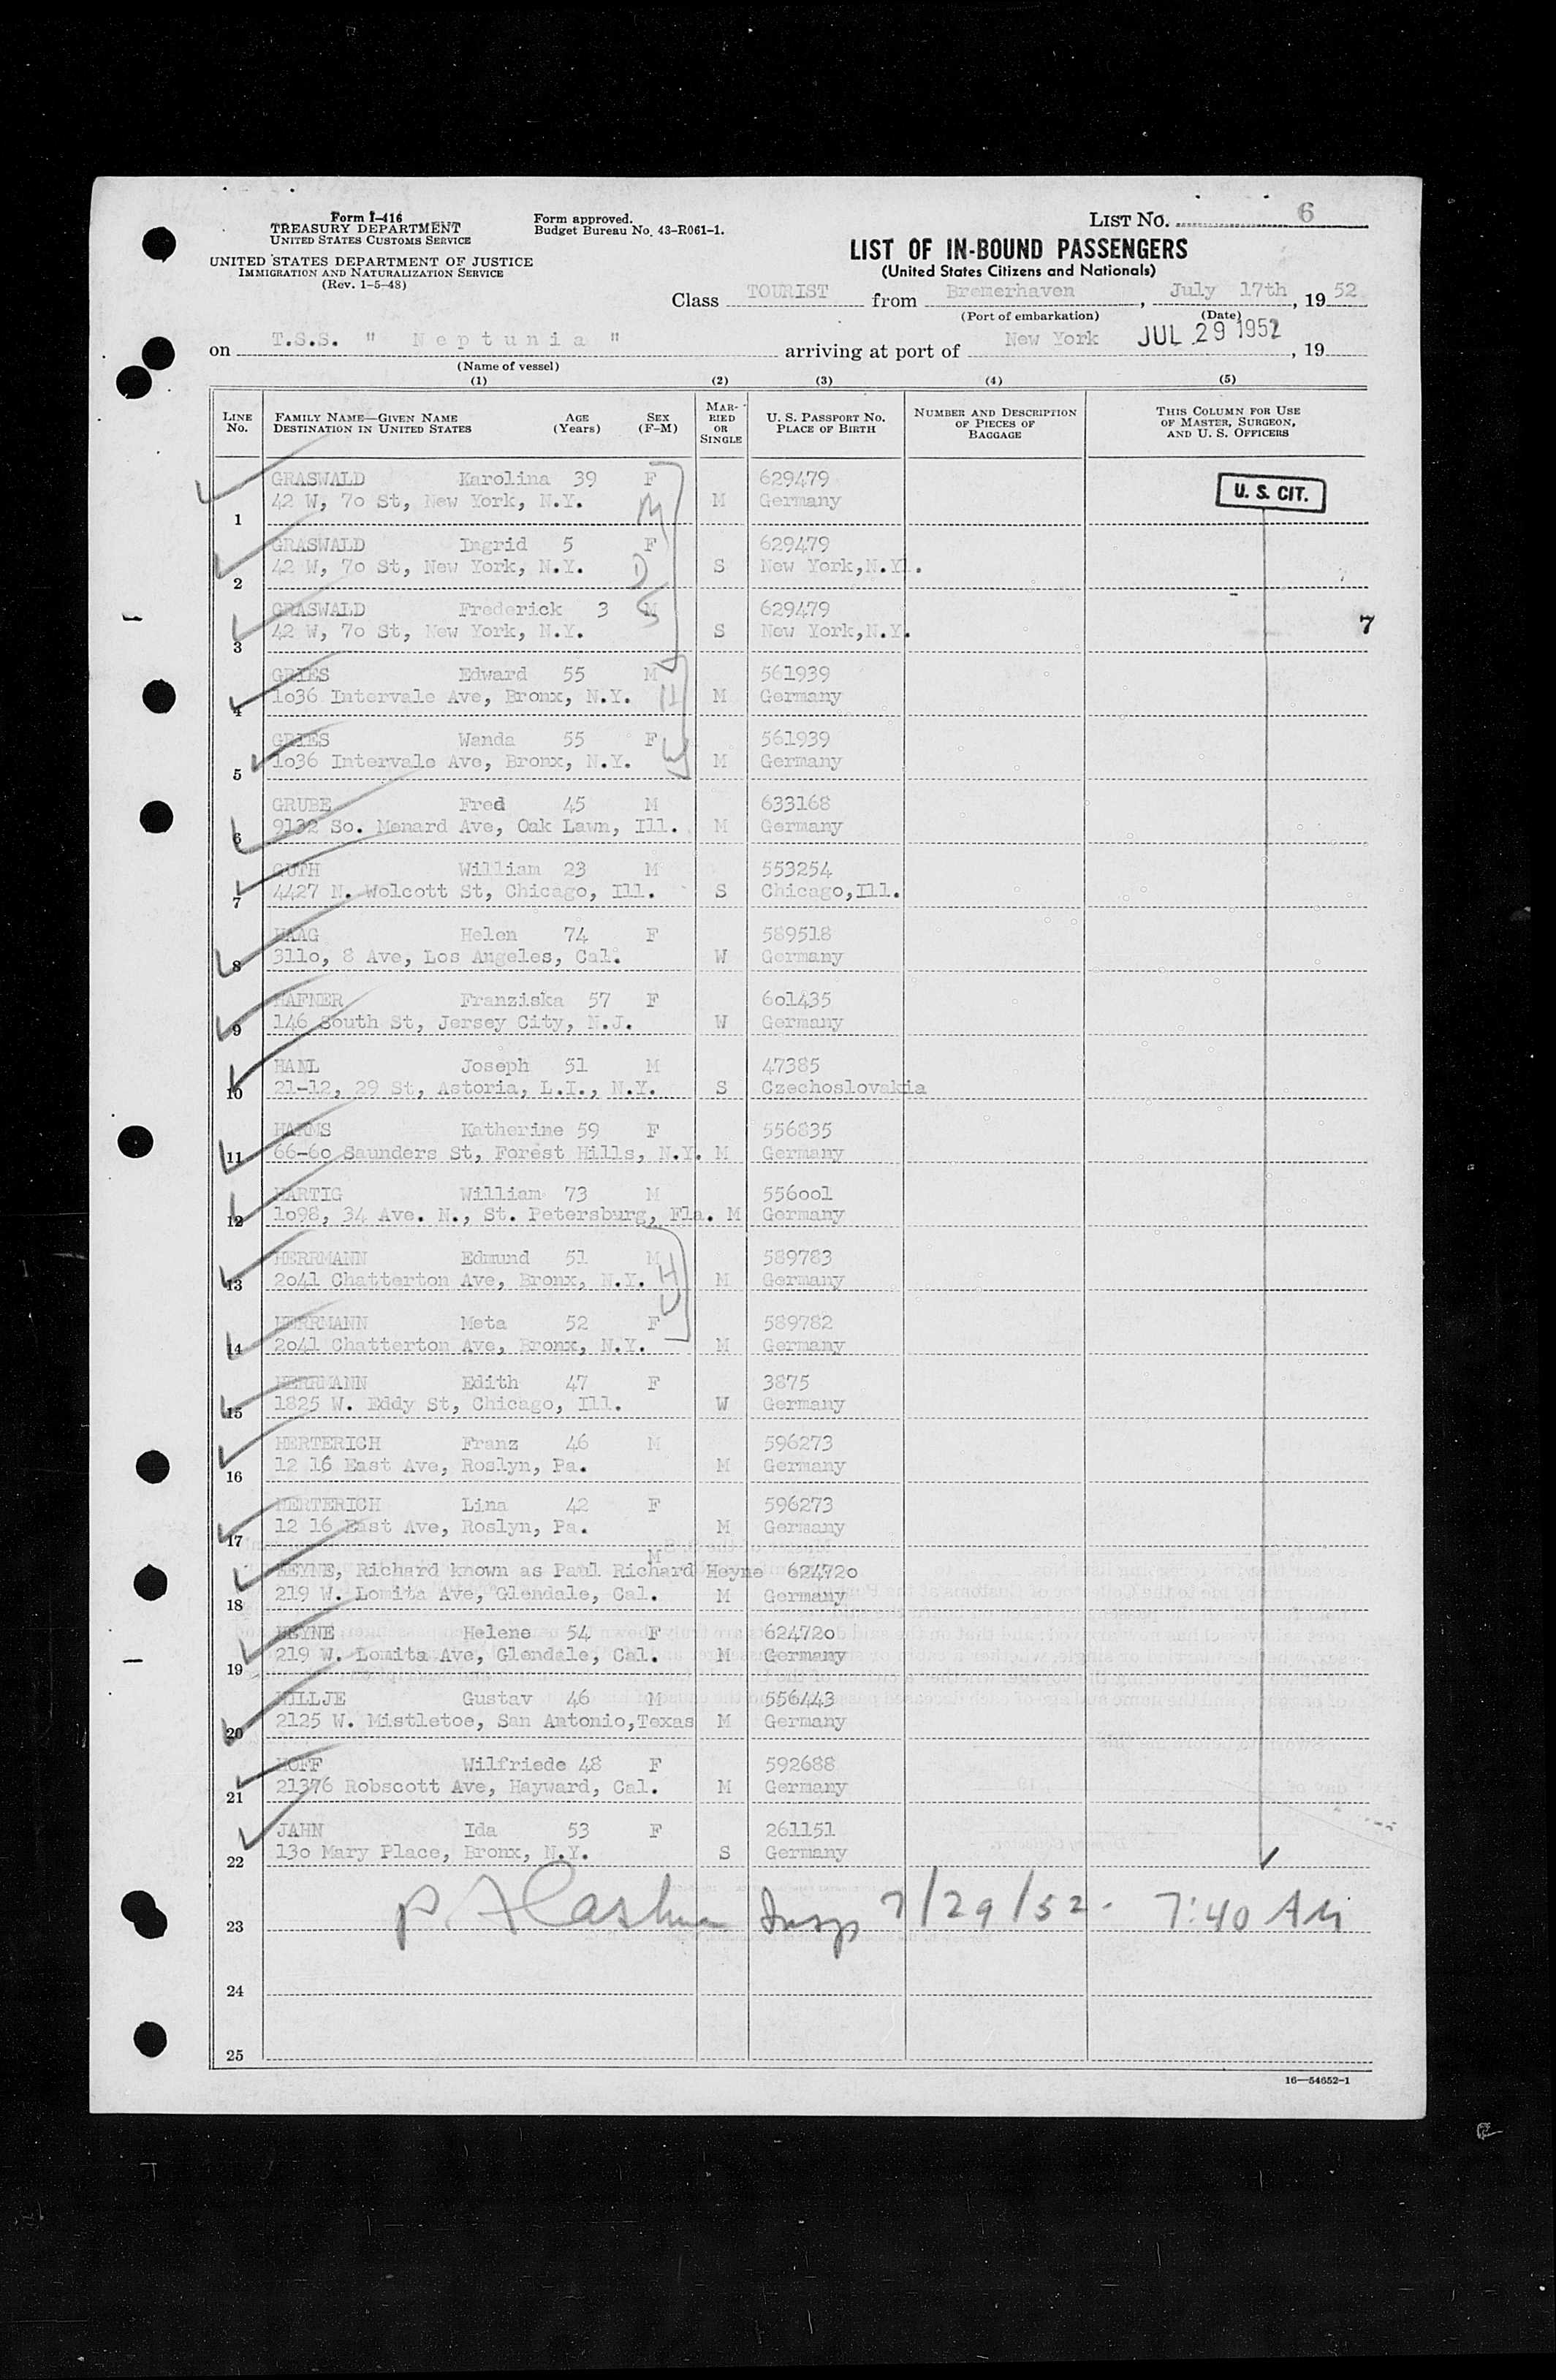 Form I-416
TREASURY DEPARTMENT
UNITED STATES CUSTOMS SERVICE
UNITED STATES DEPARTMENT OF JUSTICE
IMMIGRATION AND NATURALIZATION SERVICE
(Rev. 1-5-48)
Form approved.
Budget Bureau No. 43-R061-1.
LIST NO. 6
LIST OF IN-BOUND PASSENGERS
(United States Citizens and Nationals)
Class TOURIST from Bremerhaven, July 17th, 1952
(Port of embarkation) (Date)
on T.S.S. " Neptunia " arriving at port of New York JUL 29 1952, 19
(Name of vessel)
(1) (2) (3) (4) (5)
LINE No. FAMILY NAME—GIVEN NAME DESTINATION IN UNITED STATES AGE (Years) SEX (F-M) MARRIED OR SINGLE U. S. PASSPORT NO. PLACE OF BIRTH NUMBER AND DESCRIPTION OF PIECES OF BAGGAGE THIS COLUMN FOR USE OF MASTER, SURGEON, AND U. S. OFFICERS
GRASWALD Karolina 39 F 629479 U. S. CIT.
1 42 W, 7o St, New York, N.Y. M M Germany
GRASWALD Ingrid 5 F 629479
2 42 W, 7o St, New York, N.Y. D S New York,N.Y.
GRASWALD Frederick 3 M S 629479 7
3 42 W, 7o St, New York, N.Y. S New York,N.Y.
GRIES Edward 55 M 561939
4 1o36 Intervale Ave, Bronx, N.Y. H M Germany
GRIES Wanda 55 F 561939
5 1o36 Intervale Ave, Bronx, N.Y. W M Germany
GRUBE Fred 45 M 633168
6 9132 So. Menard Ave, Oak Lawn, Ill. M Germany
GUTH William 23 M 553254
7 4427 N. Wolcott St, Chicago, Ill. S Chicago,Ill.
HAAG Helen 74 F 589518
8 311o, 8 Ave, Los Angeles, Cal. W Germany
HAFNER Franziska 57 F 6o1435
9 146 South St, Jersey City, N.J. W Germany
HANL Joseph 51 M 47385
10 21-12, 29 St, Astoria, L.I., N.Y. S Czechoslovakia
HARMS Katherine 59 F 556835
11 66-6o Saunders St, Forest Hills, N.Y. M Germany
HARTIG William 73 M 556oo1
12 1o98, 34 Ave. N., St. Petersburg, Fla. M Germany
HERRMANN Edmund 51 M 589783
13 2o41 Chatterton Ave, Bronx, N.Y. H M Germany
HERRMANN Meta 52 F W 589782
14 2o41 Chatterton Ave, Bronx, N.Y. M Germany
HERRMANN Edith 47 F 3875
15 1825 W. Eddy St, Chicago, Ill. W Germany
HERTERICH Franz 46 M 596273
16 12 16 East Ave, Roslyn, Pa. M Germany
HERTERICH Lina 42 F 596273
17 12 16 East Ave, Roslyn, Pa. M Germany
HEYNE, Richard known as Paul Richard Heyne M 62472o
18 219 W. Lomita Ave, Glendale, Cal. M Germany
HEYNE Helene 54 F 62472o
19 219 W. Lomita Ave, Glendale, Cal. M Germany
HILLJE Gustav 46 M 556443
20 2125 W. Mistletoe, San Antonio,Texas M Germany
HOFF Wilfriede 48 F 592688
21 21376 Robscott Ave, Hayward, Cal. M Germany
JAHN Ida 53 F 261151
22 13o Mary Place, Bronx, N.Y. S Germany
23 Insp 7/29/52. 7:40 AM
24
25
16—54652-1